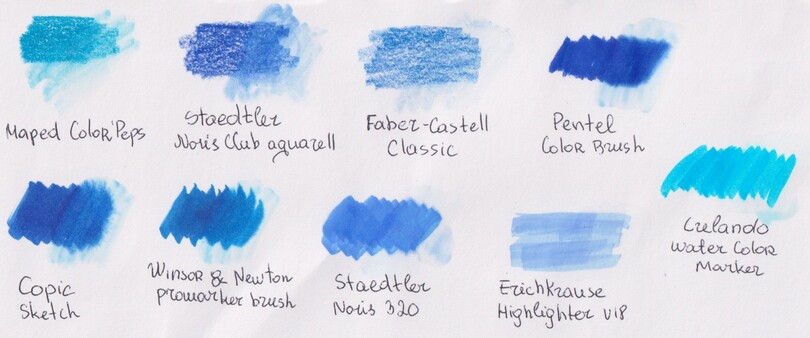 Maped Color'Peps
Staedtler
Noris Club aquarell
Faber-Castell
Classic
Pentel
Color Brush
Crelando
Water Color
Marker
Copic
Sketch
Winsor & Newton
promarker brush
Staedtler
Noris 320
Erichkrause
Highlighter V18